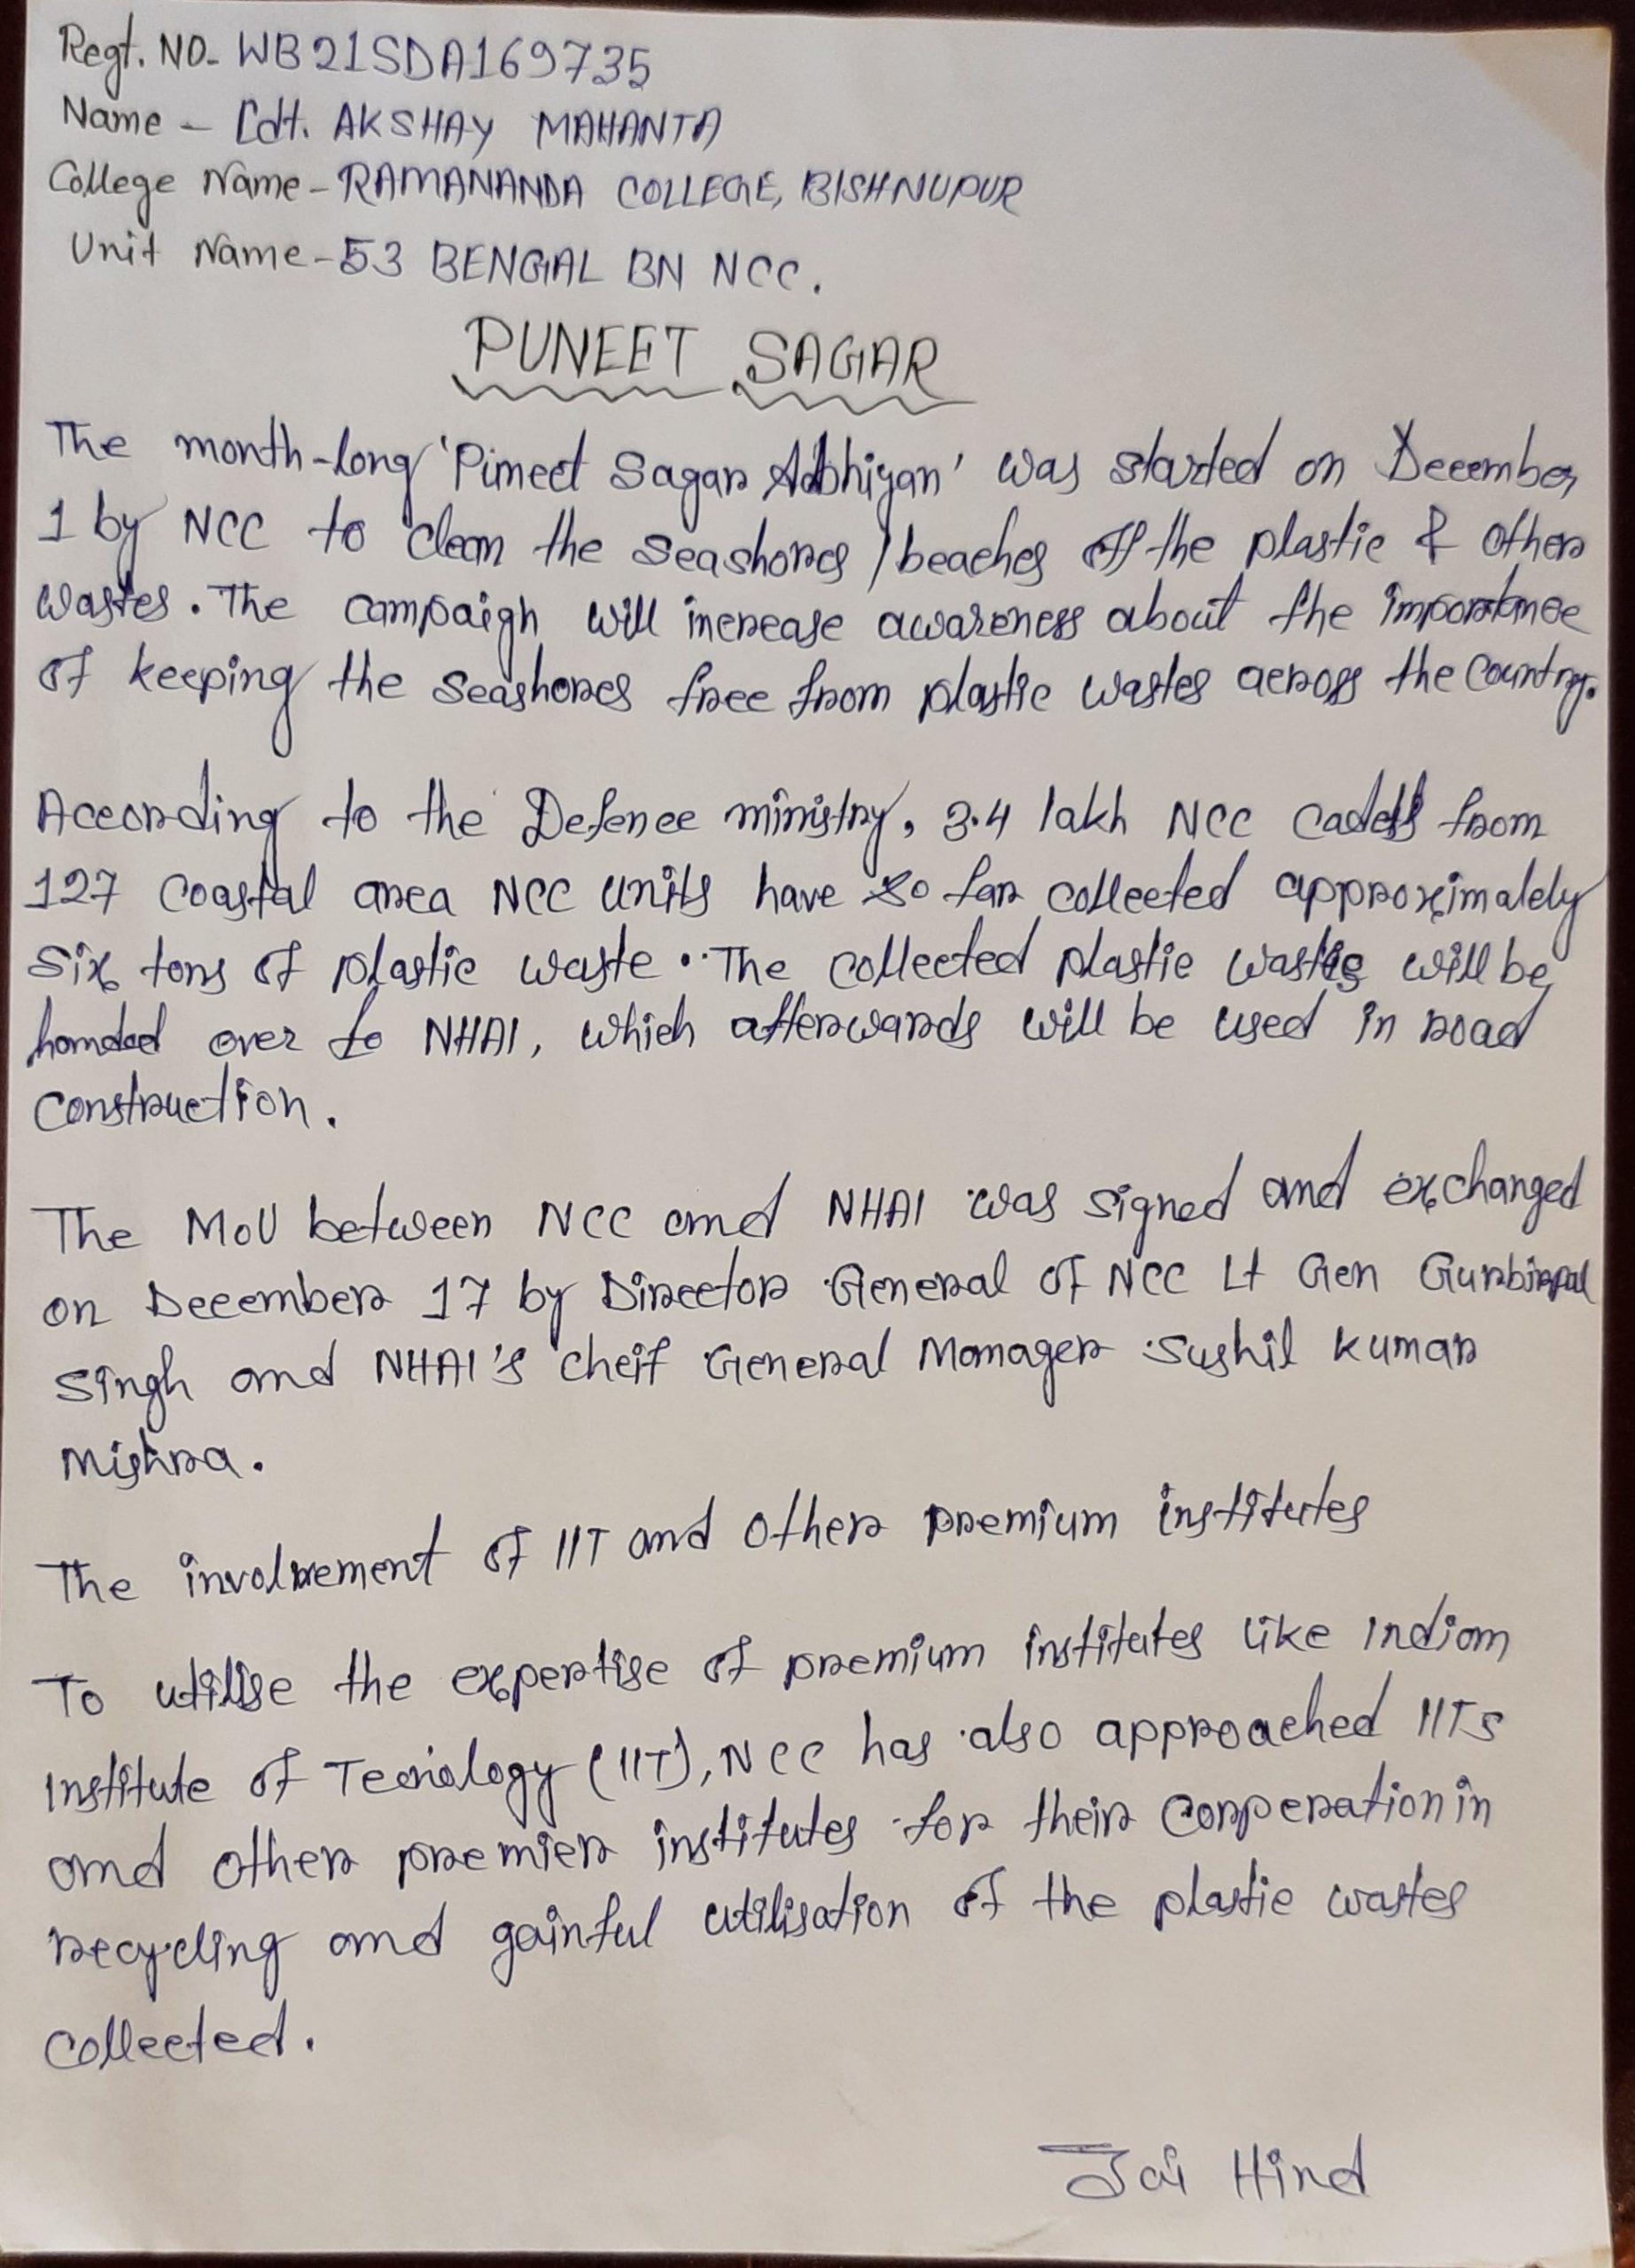 Regt. NO- WB21SDA169735
Name - Cdt. AKSHAY MAHANTA
College Name - RAMANANDA COLLEGE, BISHNUPUR
Unit Name - 53 BENGAL BN NCC.
PUNEET SAGAR
The month-long 'Pimeet Sagar Abhiyan' was started on December
1 by NCC to clean the seashores / beaches off the plastic & other
wastes. The campaigh will increase awareness about the importance
of keeping the seashores free from plastic wastes across the country.
According to the Defence ministry, 3.4 lakh NCC cadets from
127 coastal area NCC units have so far collected approximately
six tons of plastic waste. The collected plastic wastes will be
handed over to NHAI, which afterwards will be used in road
construction.
The MoU between NCC and NHAI was signed and exchanged
on December 17 by Director General of NCC Lt Gen Gurbirpal
Singh and NHAI's cheif General Manager Sushil Kumar
Mishra.
The involvement of IIT and other premium institutes
To utilise the expertise of premium institutes like Indian
Institute of Tecnology (IIT), NCC has also approached IITs
and other premier institutes for their corperation in
recycling and gainful utilisation of the plastic wastes
collected.
Jai Hind